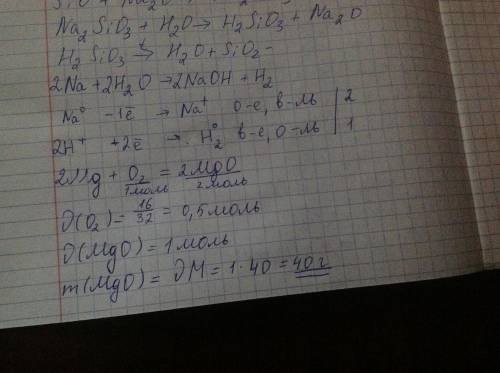 Na₂SiO₃ + H₂O → H₂SiO₃ + Na₂O
H₂SiO₃ →t H₂O + SiO₂ -
2Na + 2H₂O → 2NaOH + H₂
Na⁰ -1ē → Na⁺ о-е, в-ль | 2
2H⁺ +2ē → H₂⁰ в-е, о-ль | 1
2Mg + O₂ = 2MgO
1моль 2моль
∂(O₂) = 16/32 = 0,5моль
∂(MgO) = 1моль
m(MgO) = ∂M = 1·40 = 40г